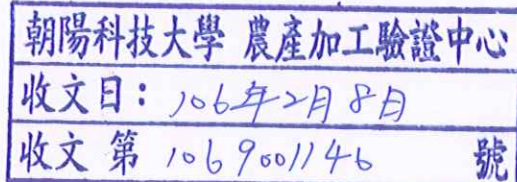 朝陽科技大學 農產加工驗證中心
收文日：106年2月8日
收文第 1069001146 號